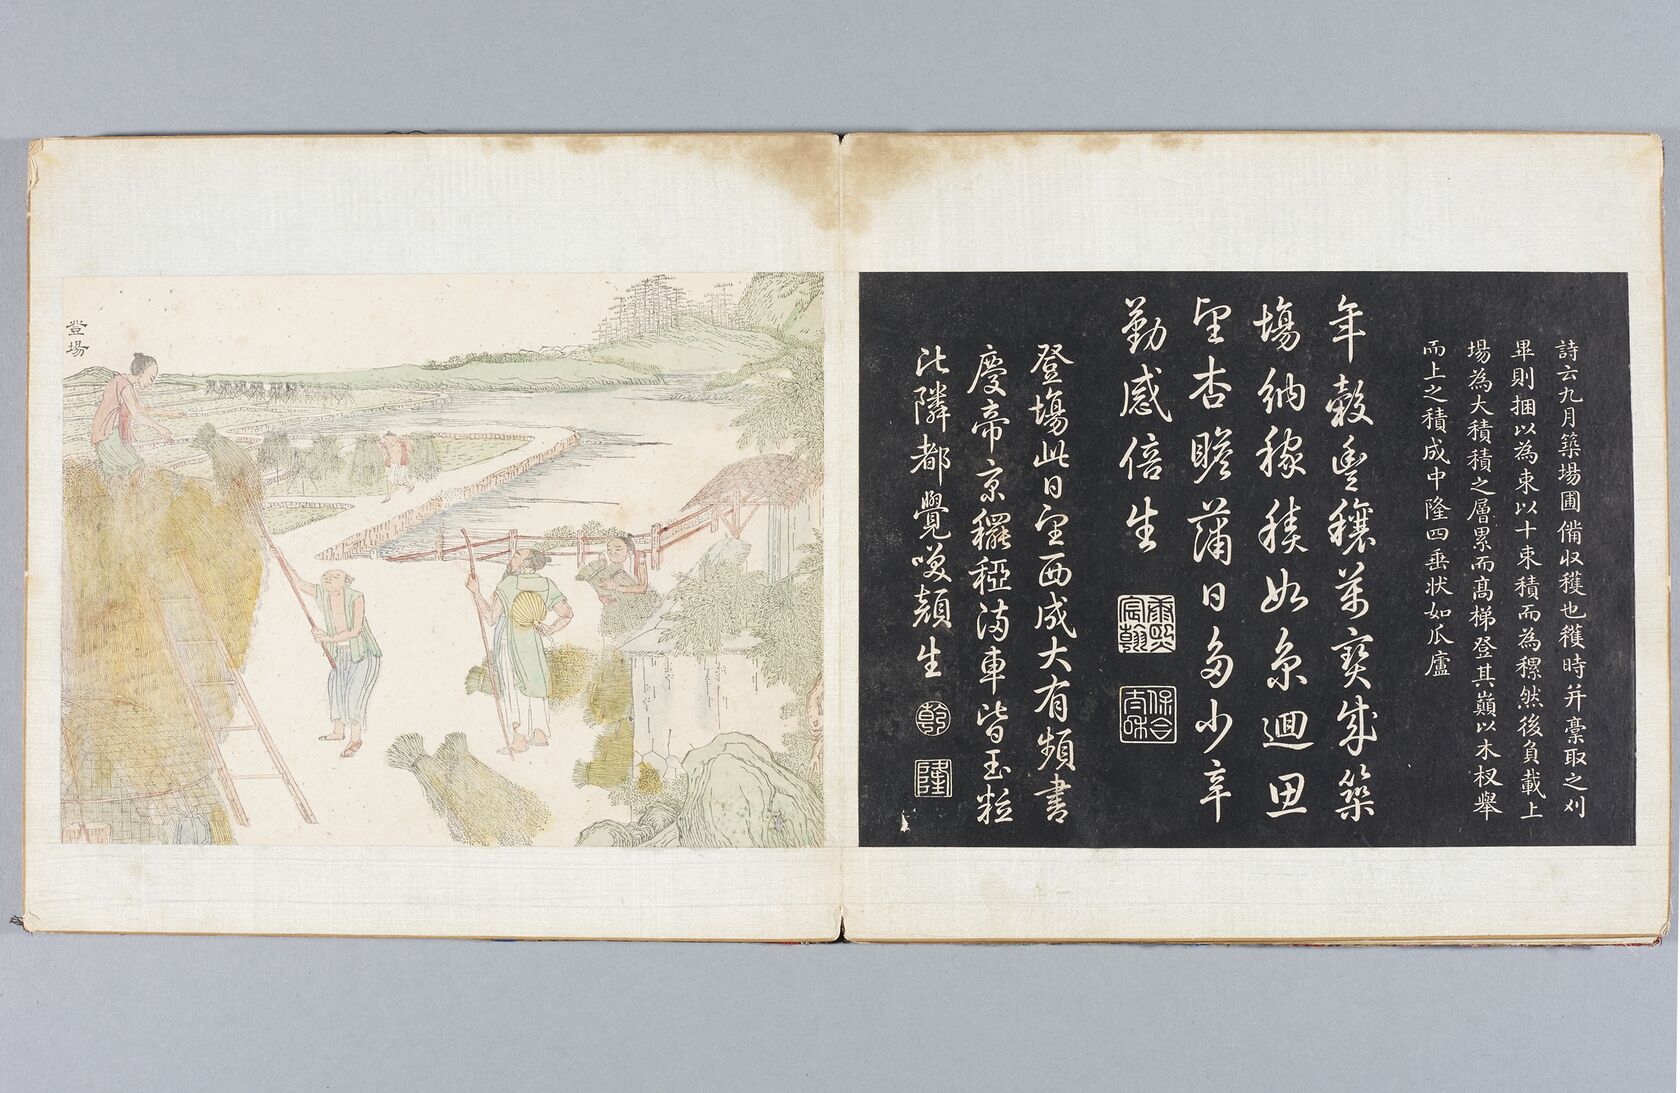 詩云九月築場圃備収穫也穫時并藁取之刈
畢則捆以為束以十束積而為穕然後負載上
場為大積積之層累而高梯登其巔以木杈舉
而上之積成中隆四垂狀如瓜廬
年穀豐穰萬寶成築
場納稼積如京迴思
望杏瞻蒲日多少辛
勤感倍生
雨炎宸翰
保合太和
登場此日望西成大有頻書
慶帝京䆉稏滿車皆玉粒
比隣都覺笑顏生
乾
隆
登場